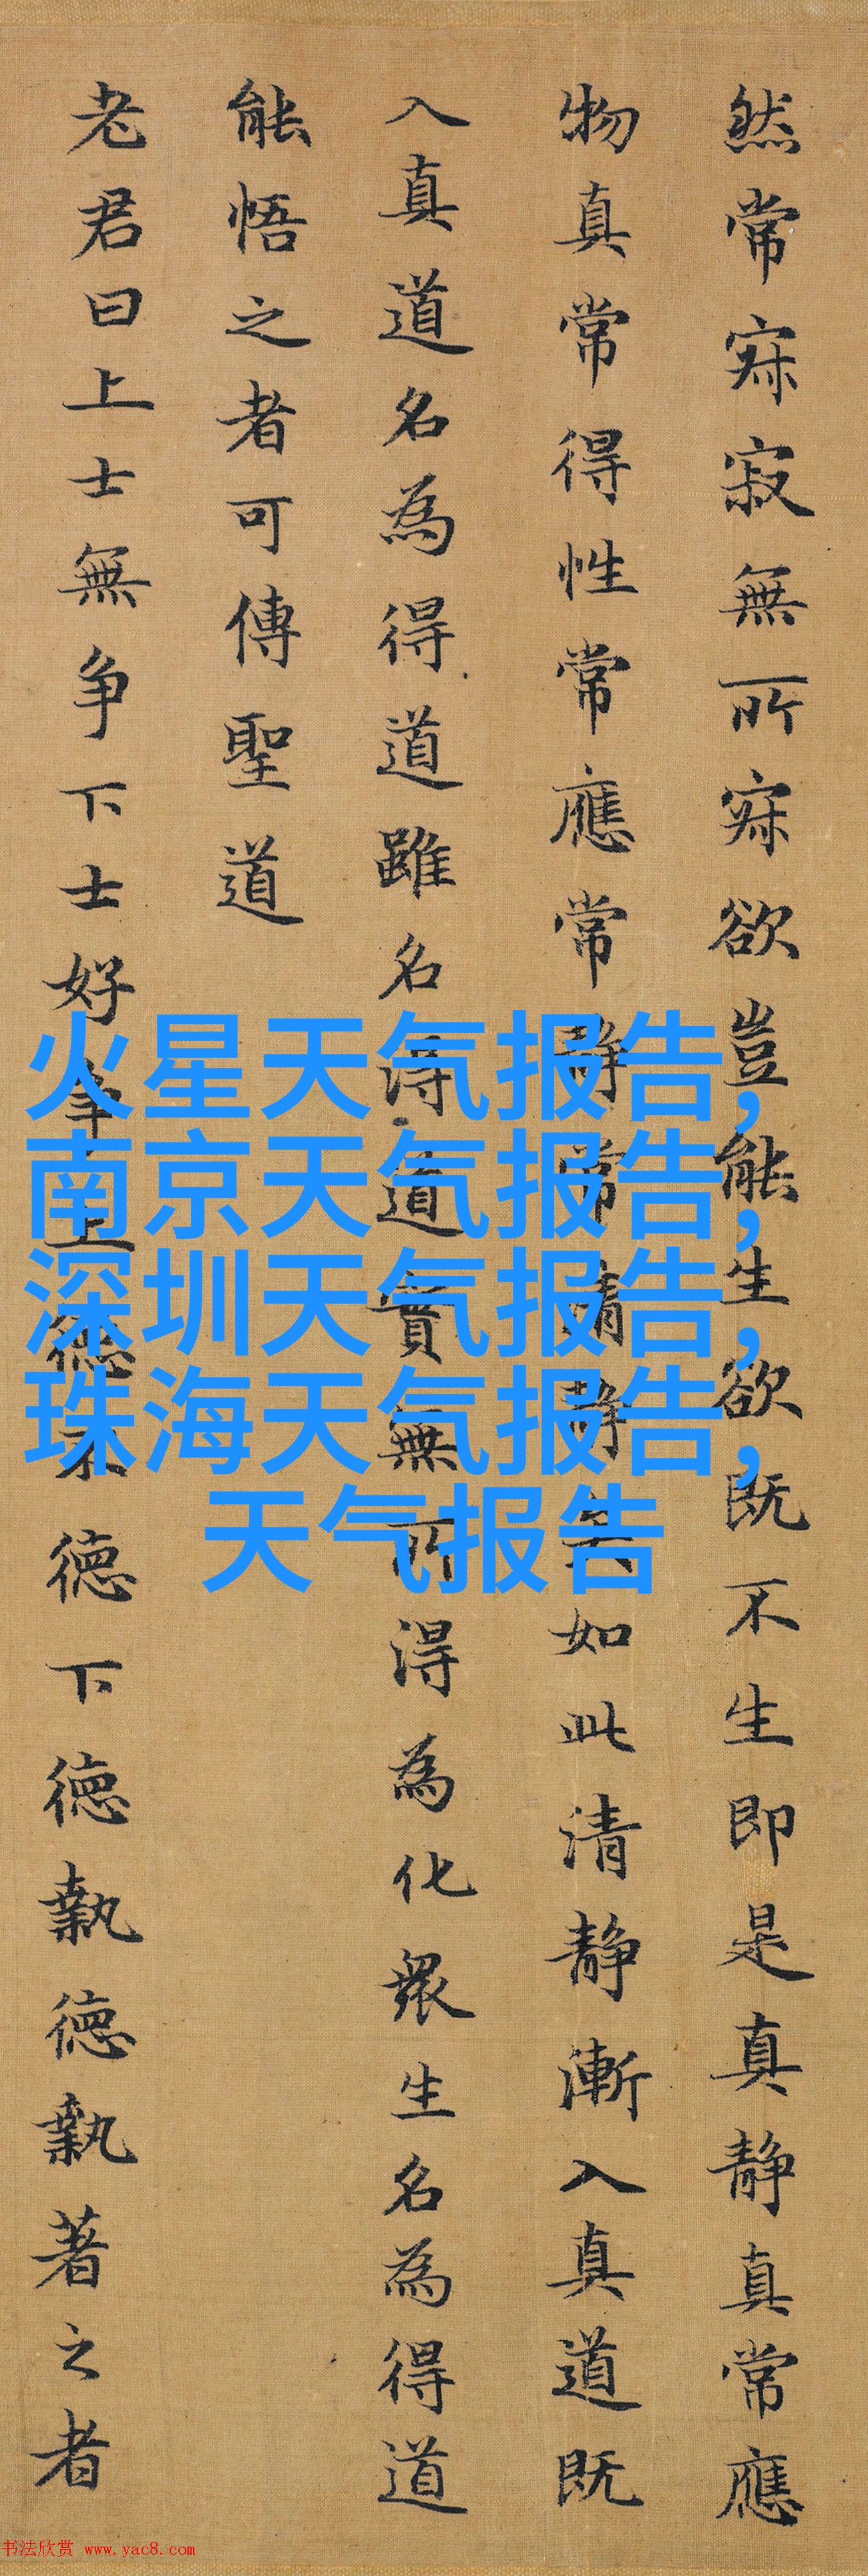 然常寂寂無所寂欲豈能生欲既不生即是真静真常應
物真常得性常應常静常清静矣如此清静漸入真道既
入真道名為得道雖名得道實無所得為化衆生名為得道
能悟之者可傳聖道
老君曰上士無争下士好争上德不德下德執德執著之者
火星天气报告,
南京天气报告,
深圳天气报告,
珠海天气报告,
天气报告
书法欣赏 www.yac8.com